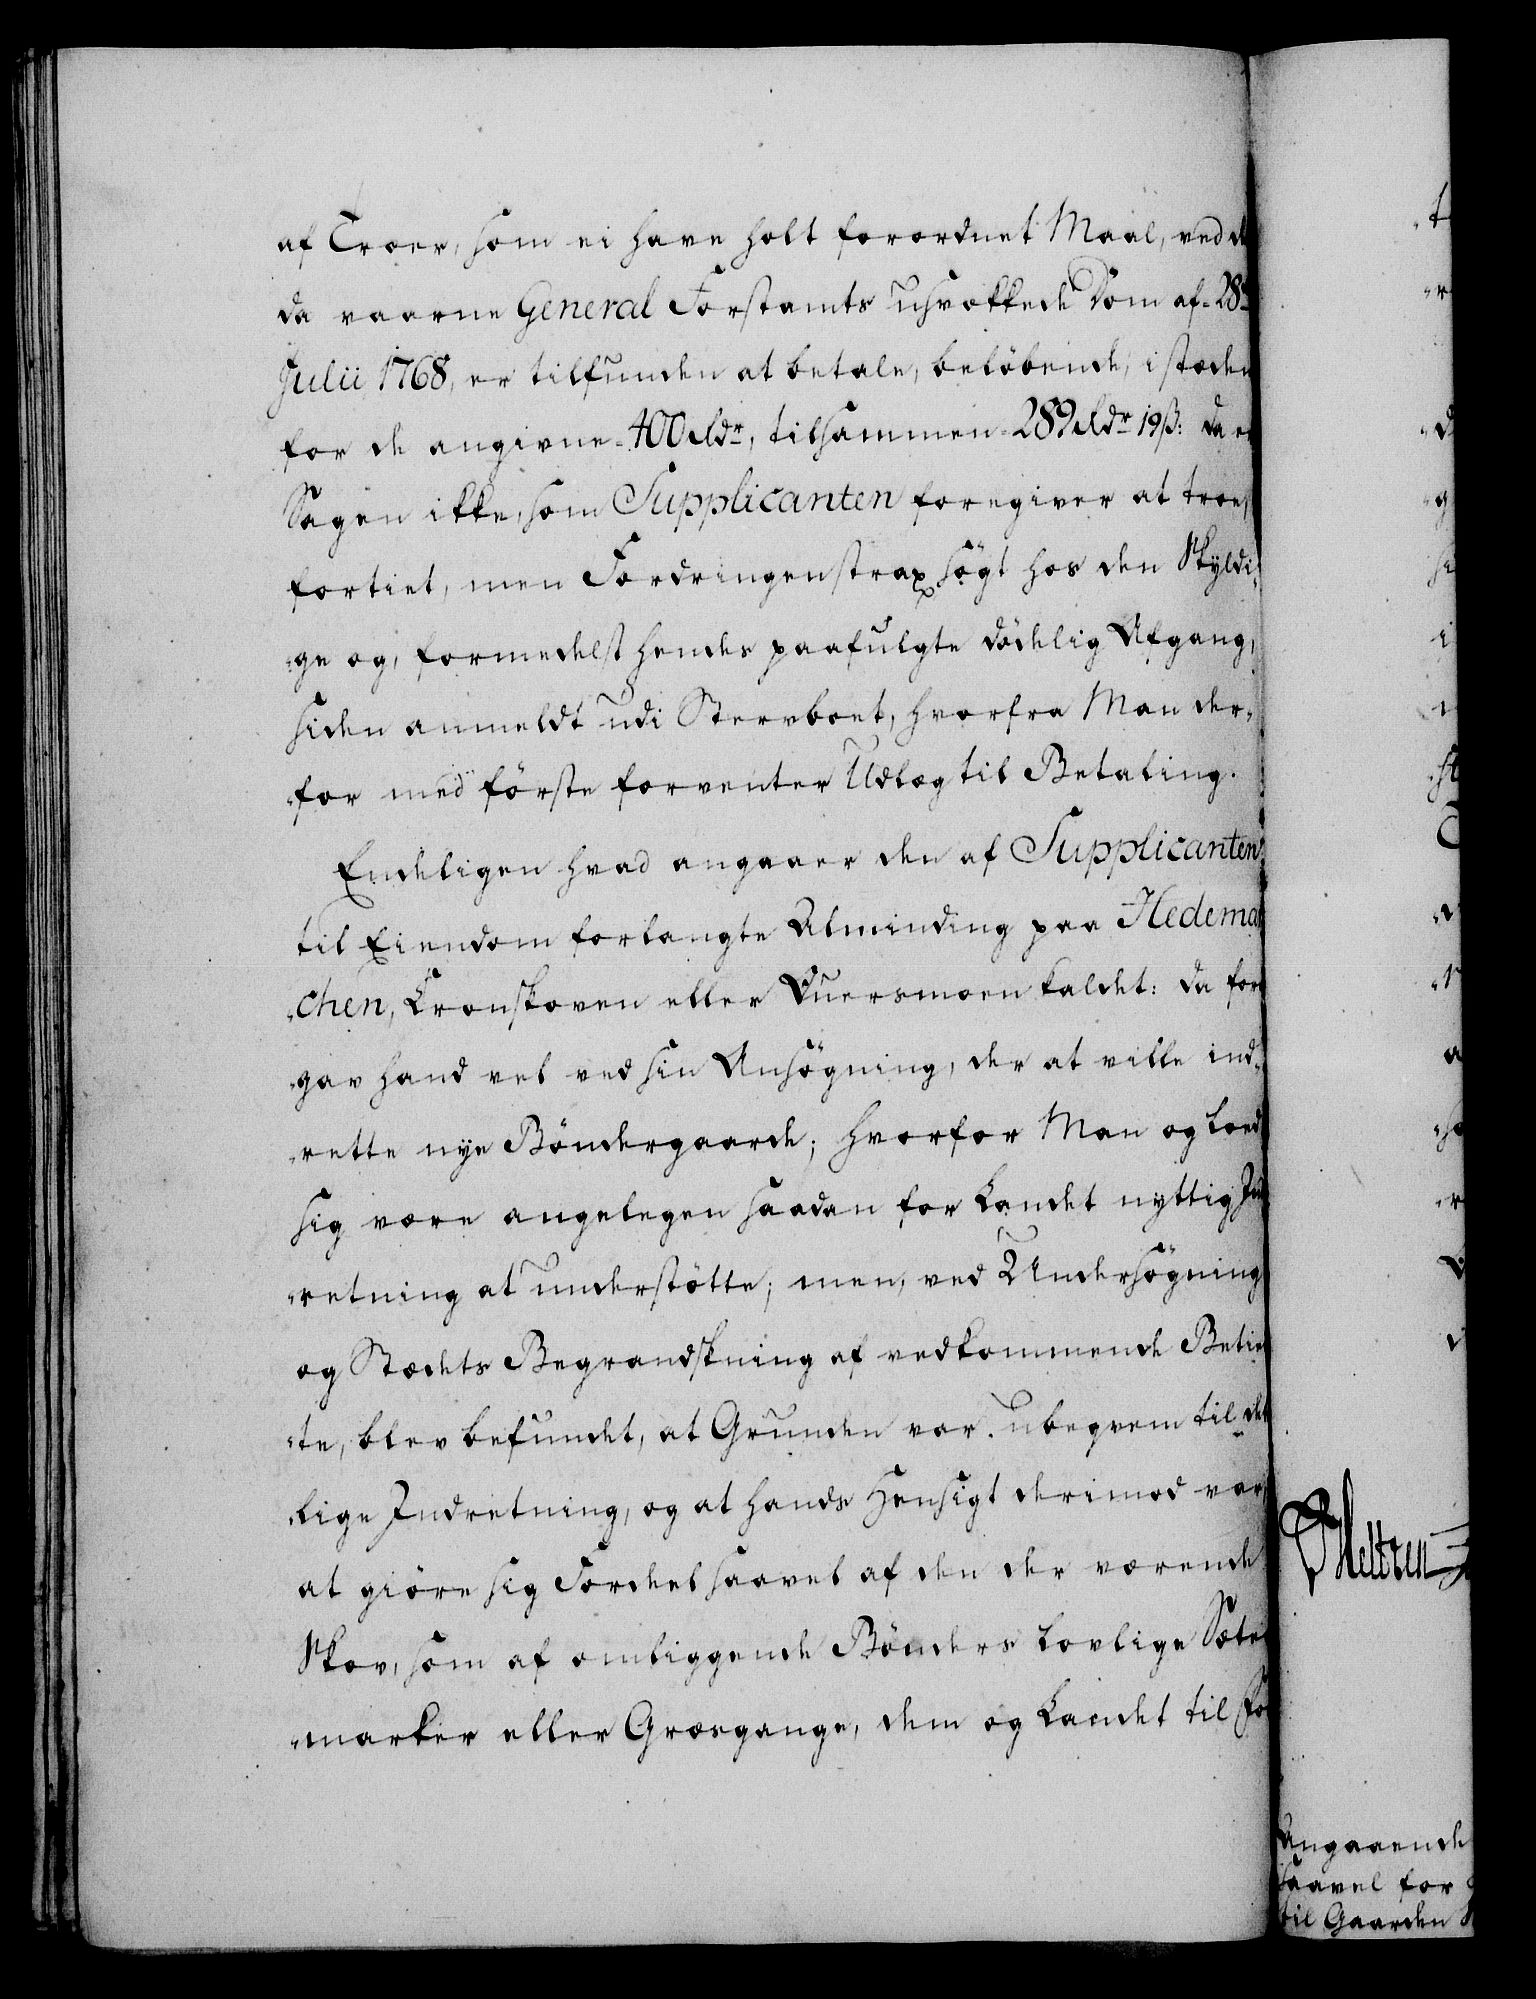 af Træer, som ei have holt forordnet Maal, ved d
da værende General Forstamts ushvækkede Dom af 28de
Julii 1768, er tilfunden at betale, beløbende, i stæden
for de angivne 400 Rdr, tilsammen 289 Rdr 19 ß: da er
Sagen ikke, som Supplicanten foregiver at troe,
fortiet, men Fordringen strax søgt hos den Skyldi-
ge og, formedelst hendes paafulgte dødelig Afgang,
siden anmeldt udi Stervboet, hvorfra Man der-
for med første forventer Udlæg til Betaling.
Endeligen hvad angaaer den af Supplicanten
til Eiendom forlangte Alminding paa Hedemar
chen, Kronskoven eller Duersmoen kaldet: da fore
gav hand vel ved sin Ansøgning, der at ville ind-
rette nye Bøndergaarde; hvorfor Man og loed
sig være angelegen saadan for Landet nyttig Ind
retning at understøtte; men, ved Undersøgning
og Stædets Begrandskning af vedkommende Betien
te, blev befundet, at Grunden var ubeqvem til det
lige Indretning, og at hands Hensigt derimod var,
at giøre sig Fordeel saavel af den der værende
Skov, som af omliggende Bønders lovlige Sæter
marker eller Græsgange, dem og Landet til Fo
Angaaende
saavel for
til Gaarden